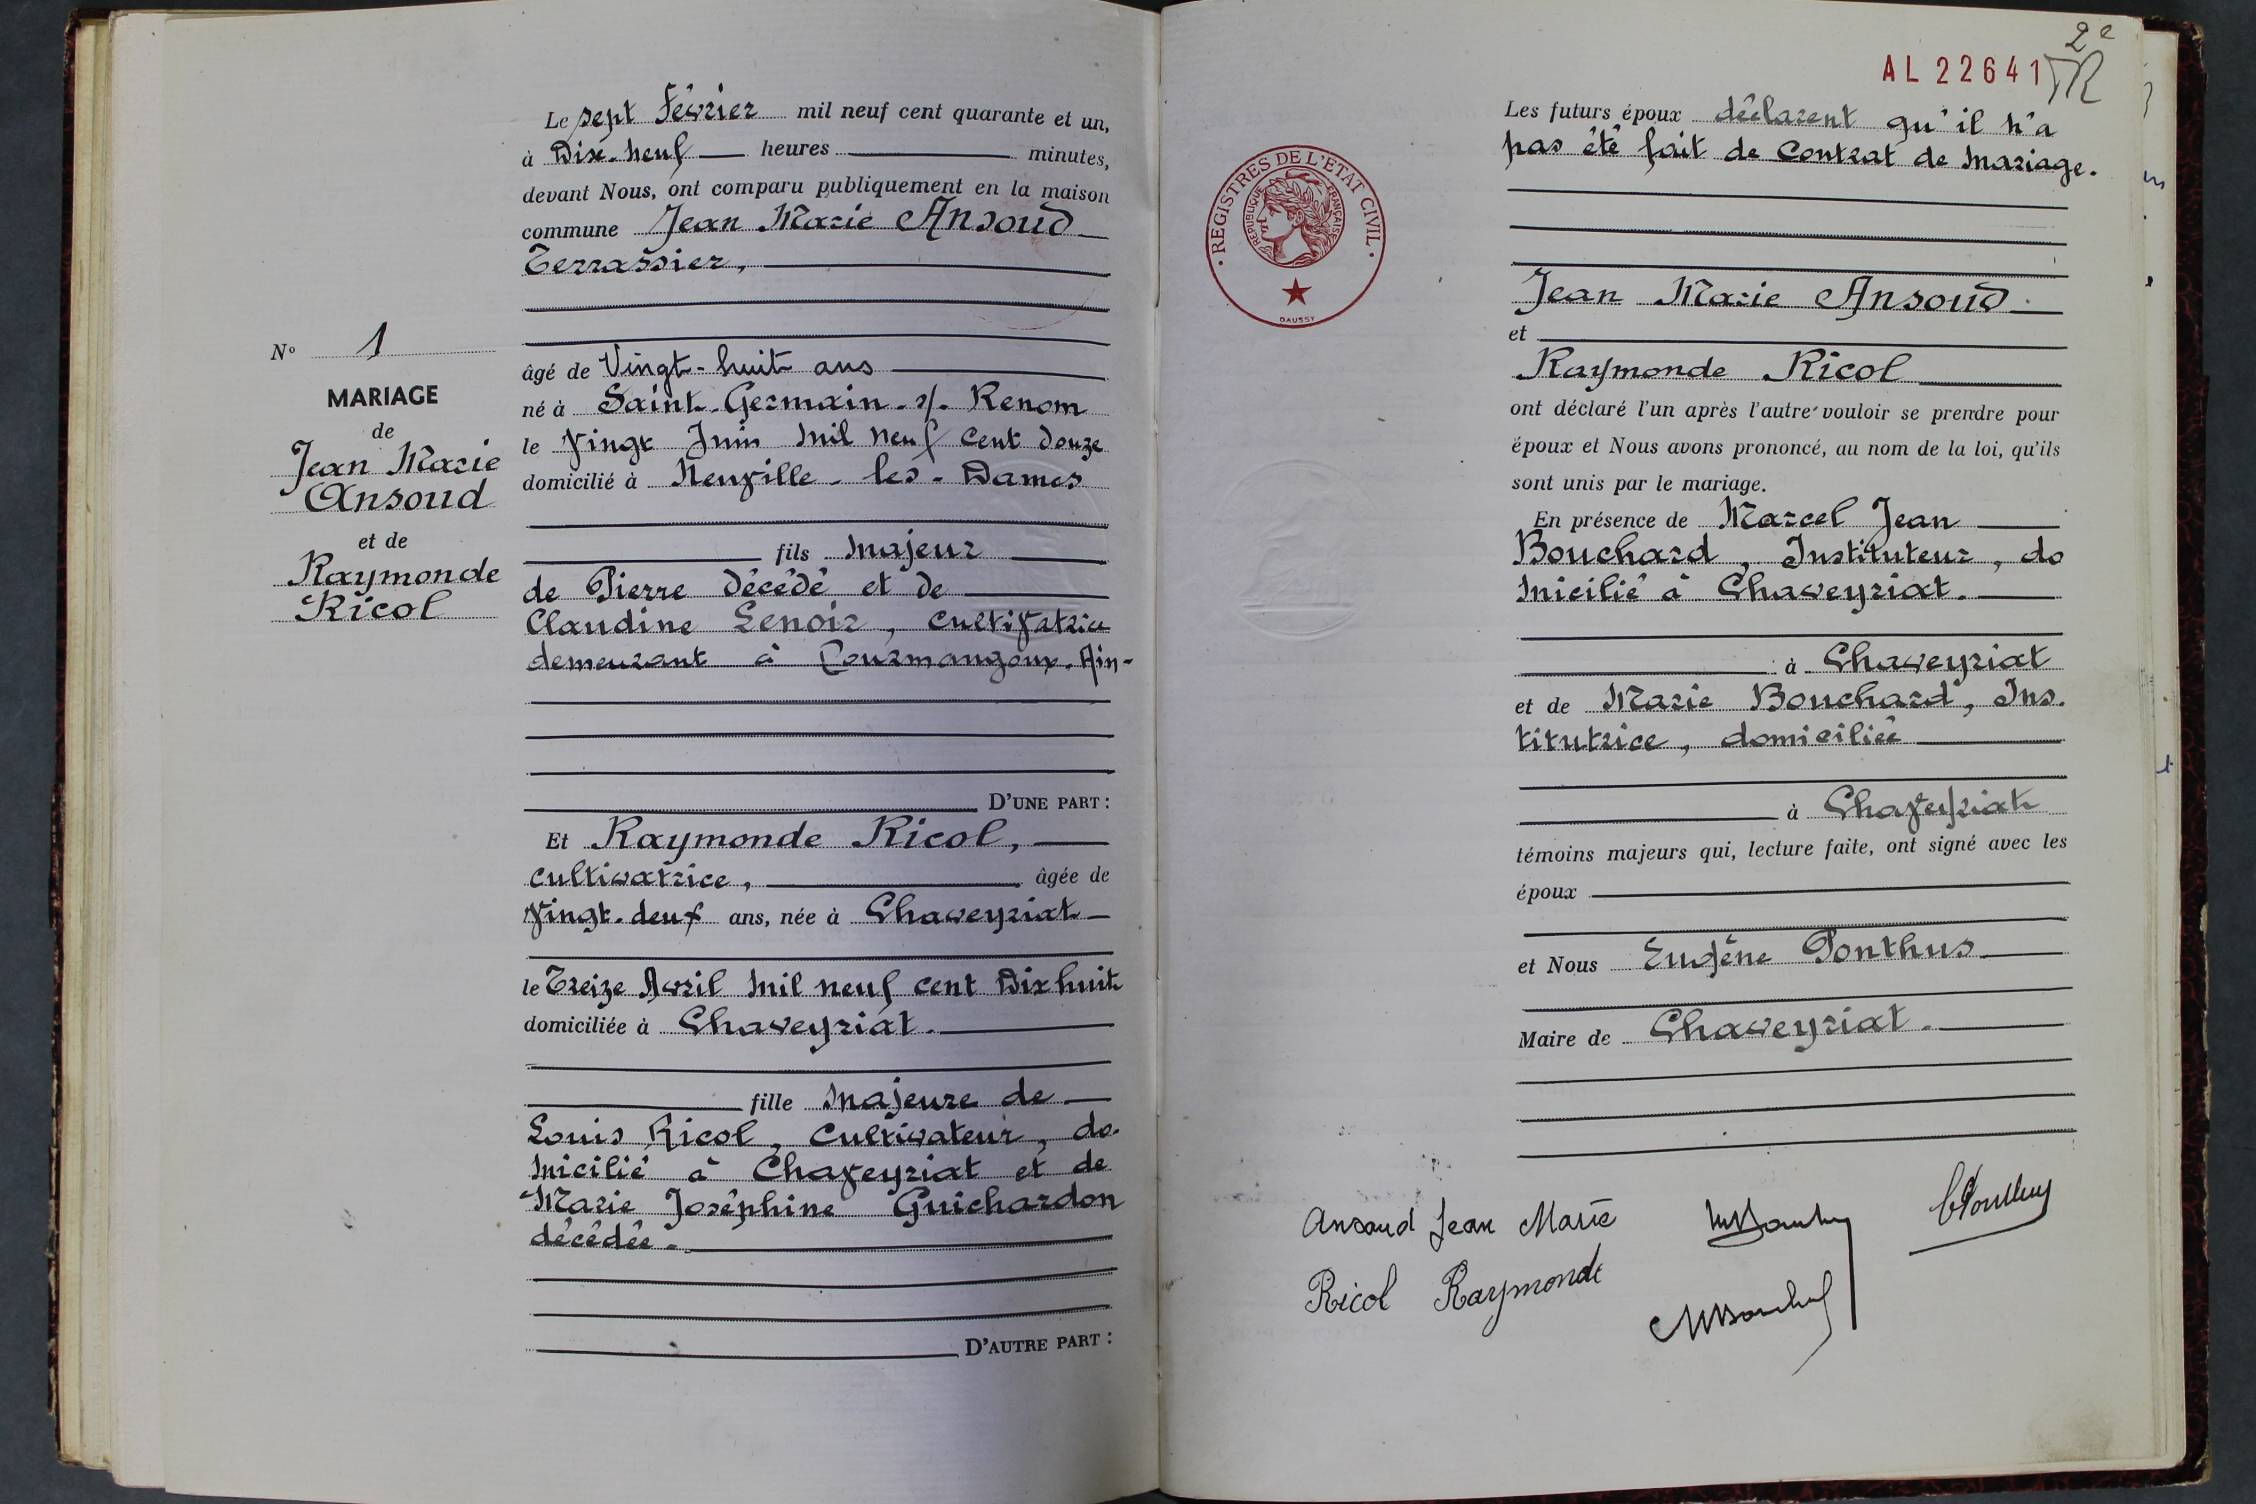 Le sept Février mil neuf cent quarante et un,
à Dix-neuf heures minutes,
devant Nous, ont comparu publiquement en la maison
commune Jean Marie Ansoud
Terrassier,
âgé de Vingt-huit ans
né à Saint-Germain-s/. Renom
le Vingt Juin mil neuf cent douze
domicilié à Neuville-les-Dames
fils majeur
de Pierre décédé et de
Claudine Lenoir, cultivatrice
demeurant à Courmangoux. Ain-
D'UNE PART :
Et Raymonde Ricol,
cultivatrice, âgée de
Vingt-deux ans, née à Chaveyriat
le Treize Avril mil neuf cent Dix huit
domiciliée à Chaveyriat.
fille majeure de
Louis Ricol, Cultivateur, do-
micilié à Chaveyriat et de
Marie Joséphine Guichardon
décédée.
D'AUTRE PART :
No 1
MARIAGE
de
Jean Marie
Ansoud
et de
Raymonde
Ricol
2e
AL 22641
REGISTRES DE L'ÉTAT CIVIL
RÉPUBLIQUE FRANÇAISE
DAUSSY
Les futurs époux déclarent qu'il n'a
pas été fait de contrat de mariage.
Jean Marie Ansoud
et
Raymonde Ricol
ont déclaré l'un après l'autre vouloir se prendre pour
époux et Nous avons prononcé, au nom de la loi, qu'ils
sont unis par le mariage.
En présence de Marcel Jean
Bouchard, Instituteur, do
micilié à Chaveyriat.
à Chaveyriat
et de Marie Bouchard, Ins.
titutrice, domiciliée
à Chaveyriat
témoins majeurs qui, lecture faite, ont signé avec les
époux
et Nous Eugène Ponthus
Maire de Chaveyriat.
Ansoud Jean Marie
Ricol Raymonde